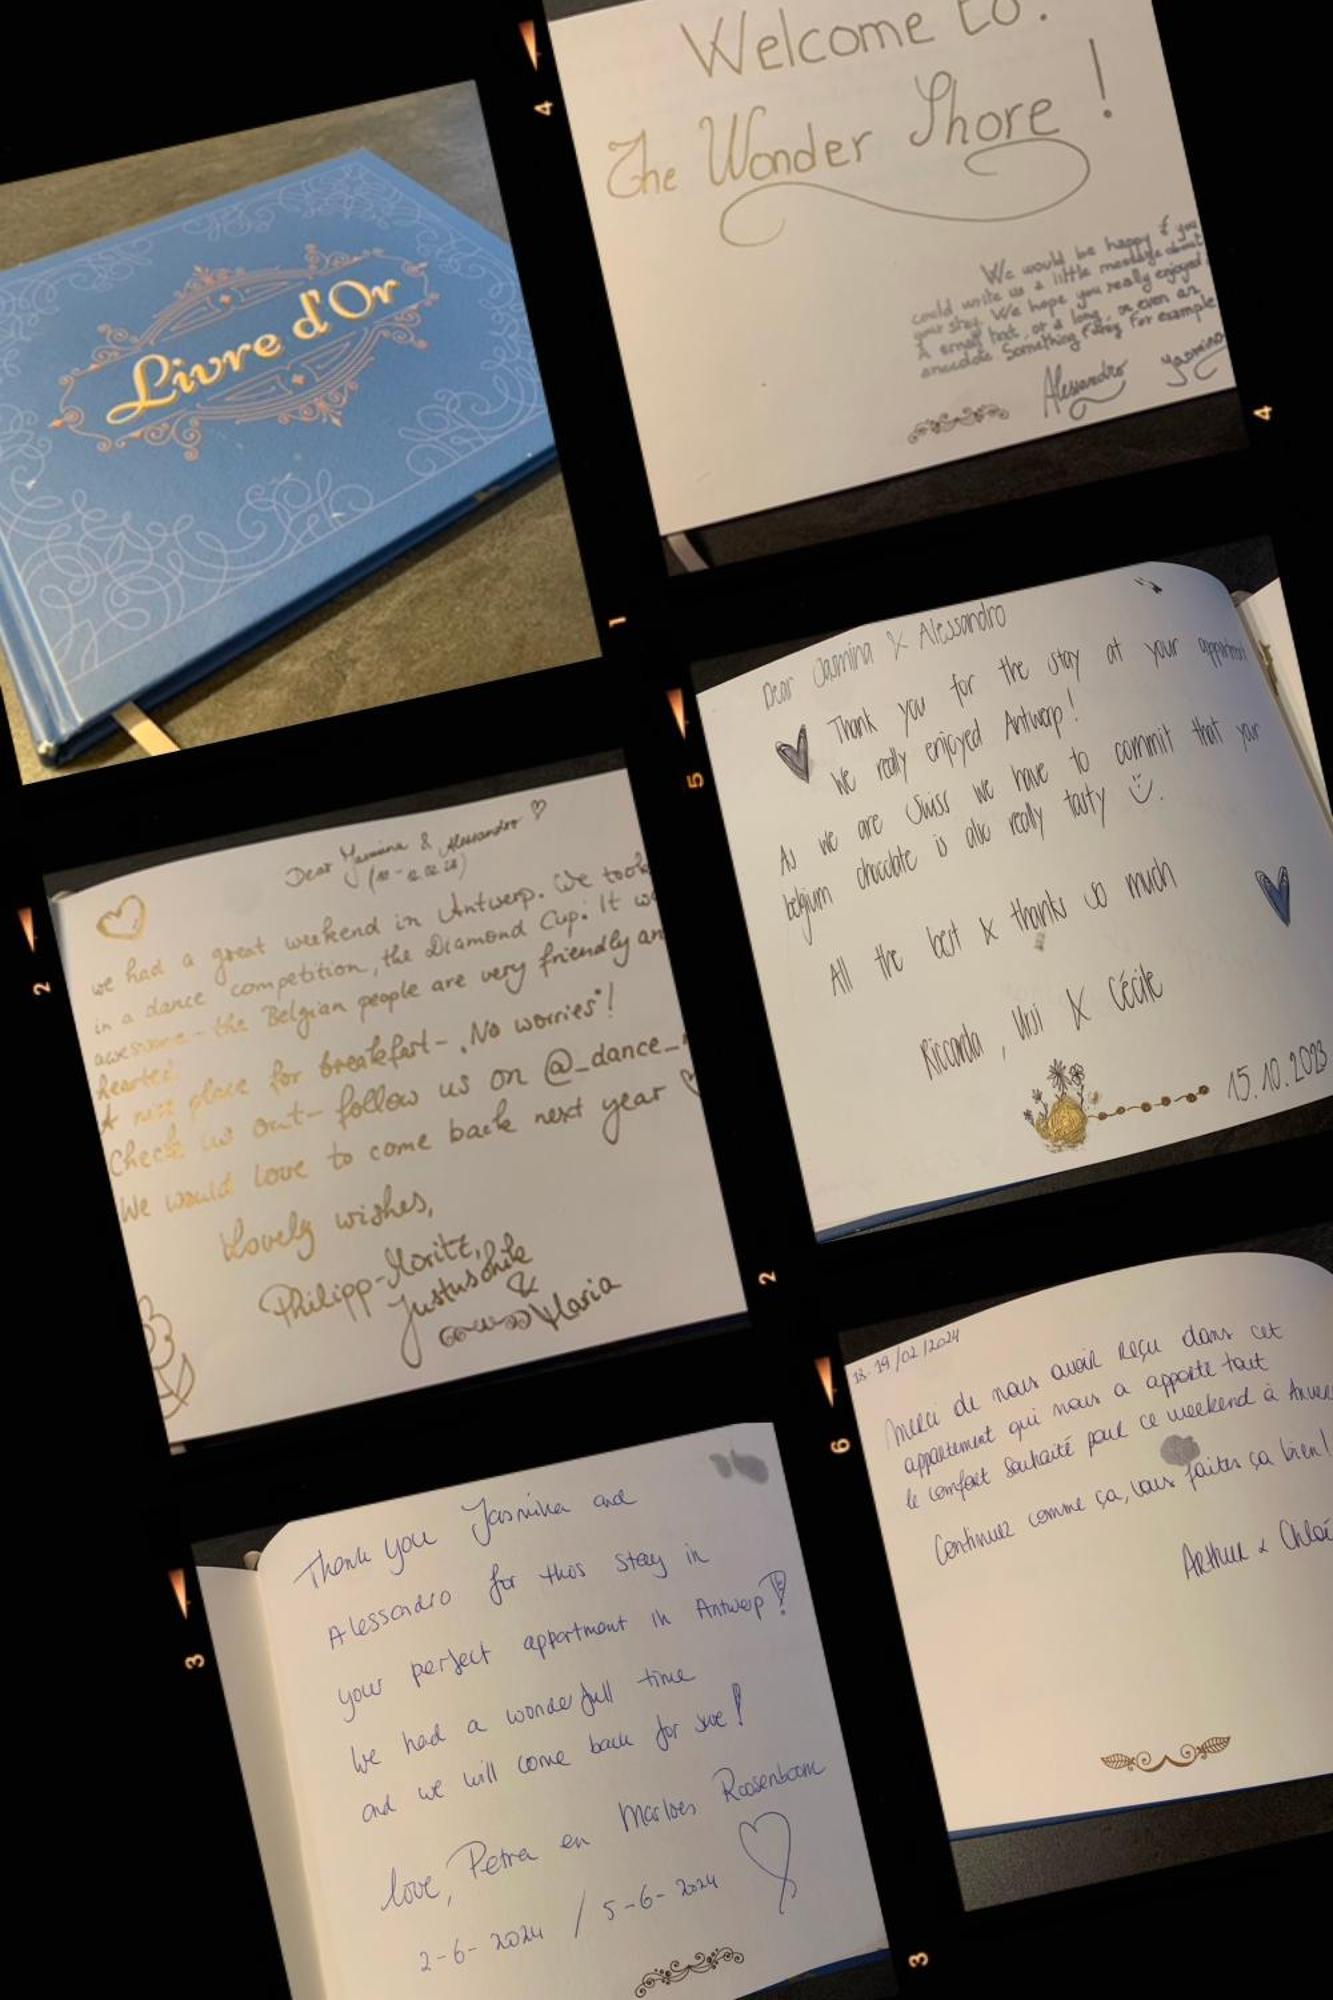 Livre d'Or
4
Welcome to:
The Wonder Shore!
We would be happy if you
could write us a little message about
your stay. We hope you really enjoyed.
A small text, or a long, or even an
anecdote. Something funny for example
Alessandro Yasmina
4
1
2
Dear Yasmina & Alessandro
we had a great weekend in Antwerp. We took
in a dance competition, the Diamond Cup. It w
awesome - the Belgian people are very friendly an
hearted.
A nice place for breakfast - "No worries"!
Check us out - follow us on @_dance_
We would love to come back next year
Lovely wishes,
Philipp-Moritz,
&
Maria
2
5
Dear Jasmina & Alessandro
Thank you for the stay at your appartment
We really enjoyed Antwerp!
As we are Swiss we have to commit that your
belgium chocolate is also really tasty
All the best & thanks so much
Riccarda, Ursi & Cécile
15.10.2023
3
Thank you Jasmina and
Alessandro for this stay in
your perfect appartment in Antwerp!
We had a wonderfull time
and we will come back for sure!
love, Petra en Marloes Roosenboom
2-6-2024 / 5-6-2024
6
18-19/02/2024
Merci de nous avoir reçu dans cet
appartement qui nous a apporté tout
le confort souhaité pour ce weekend à Anver
Continuez comme ça, vous faites ça bien!
Arthur & Chloé
3